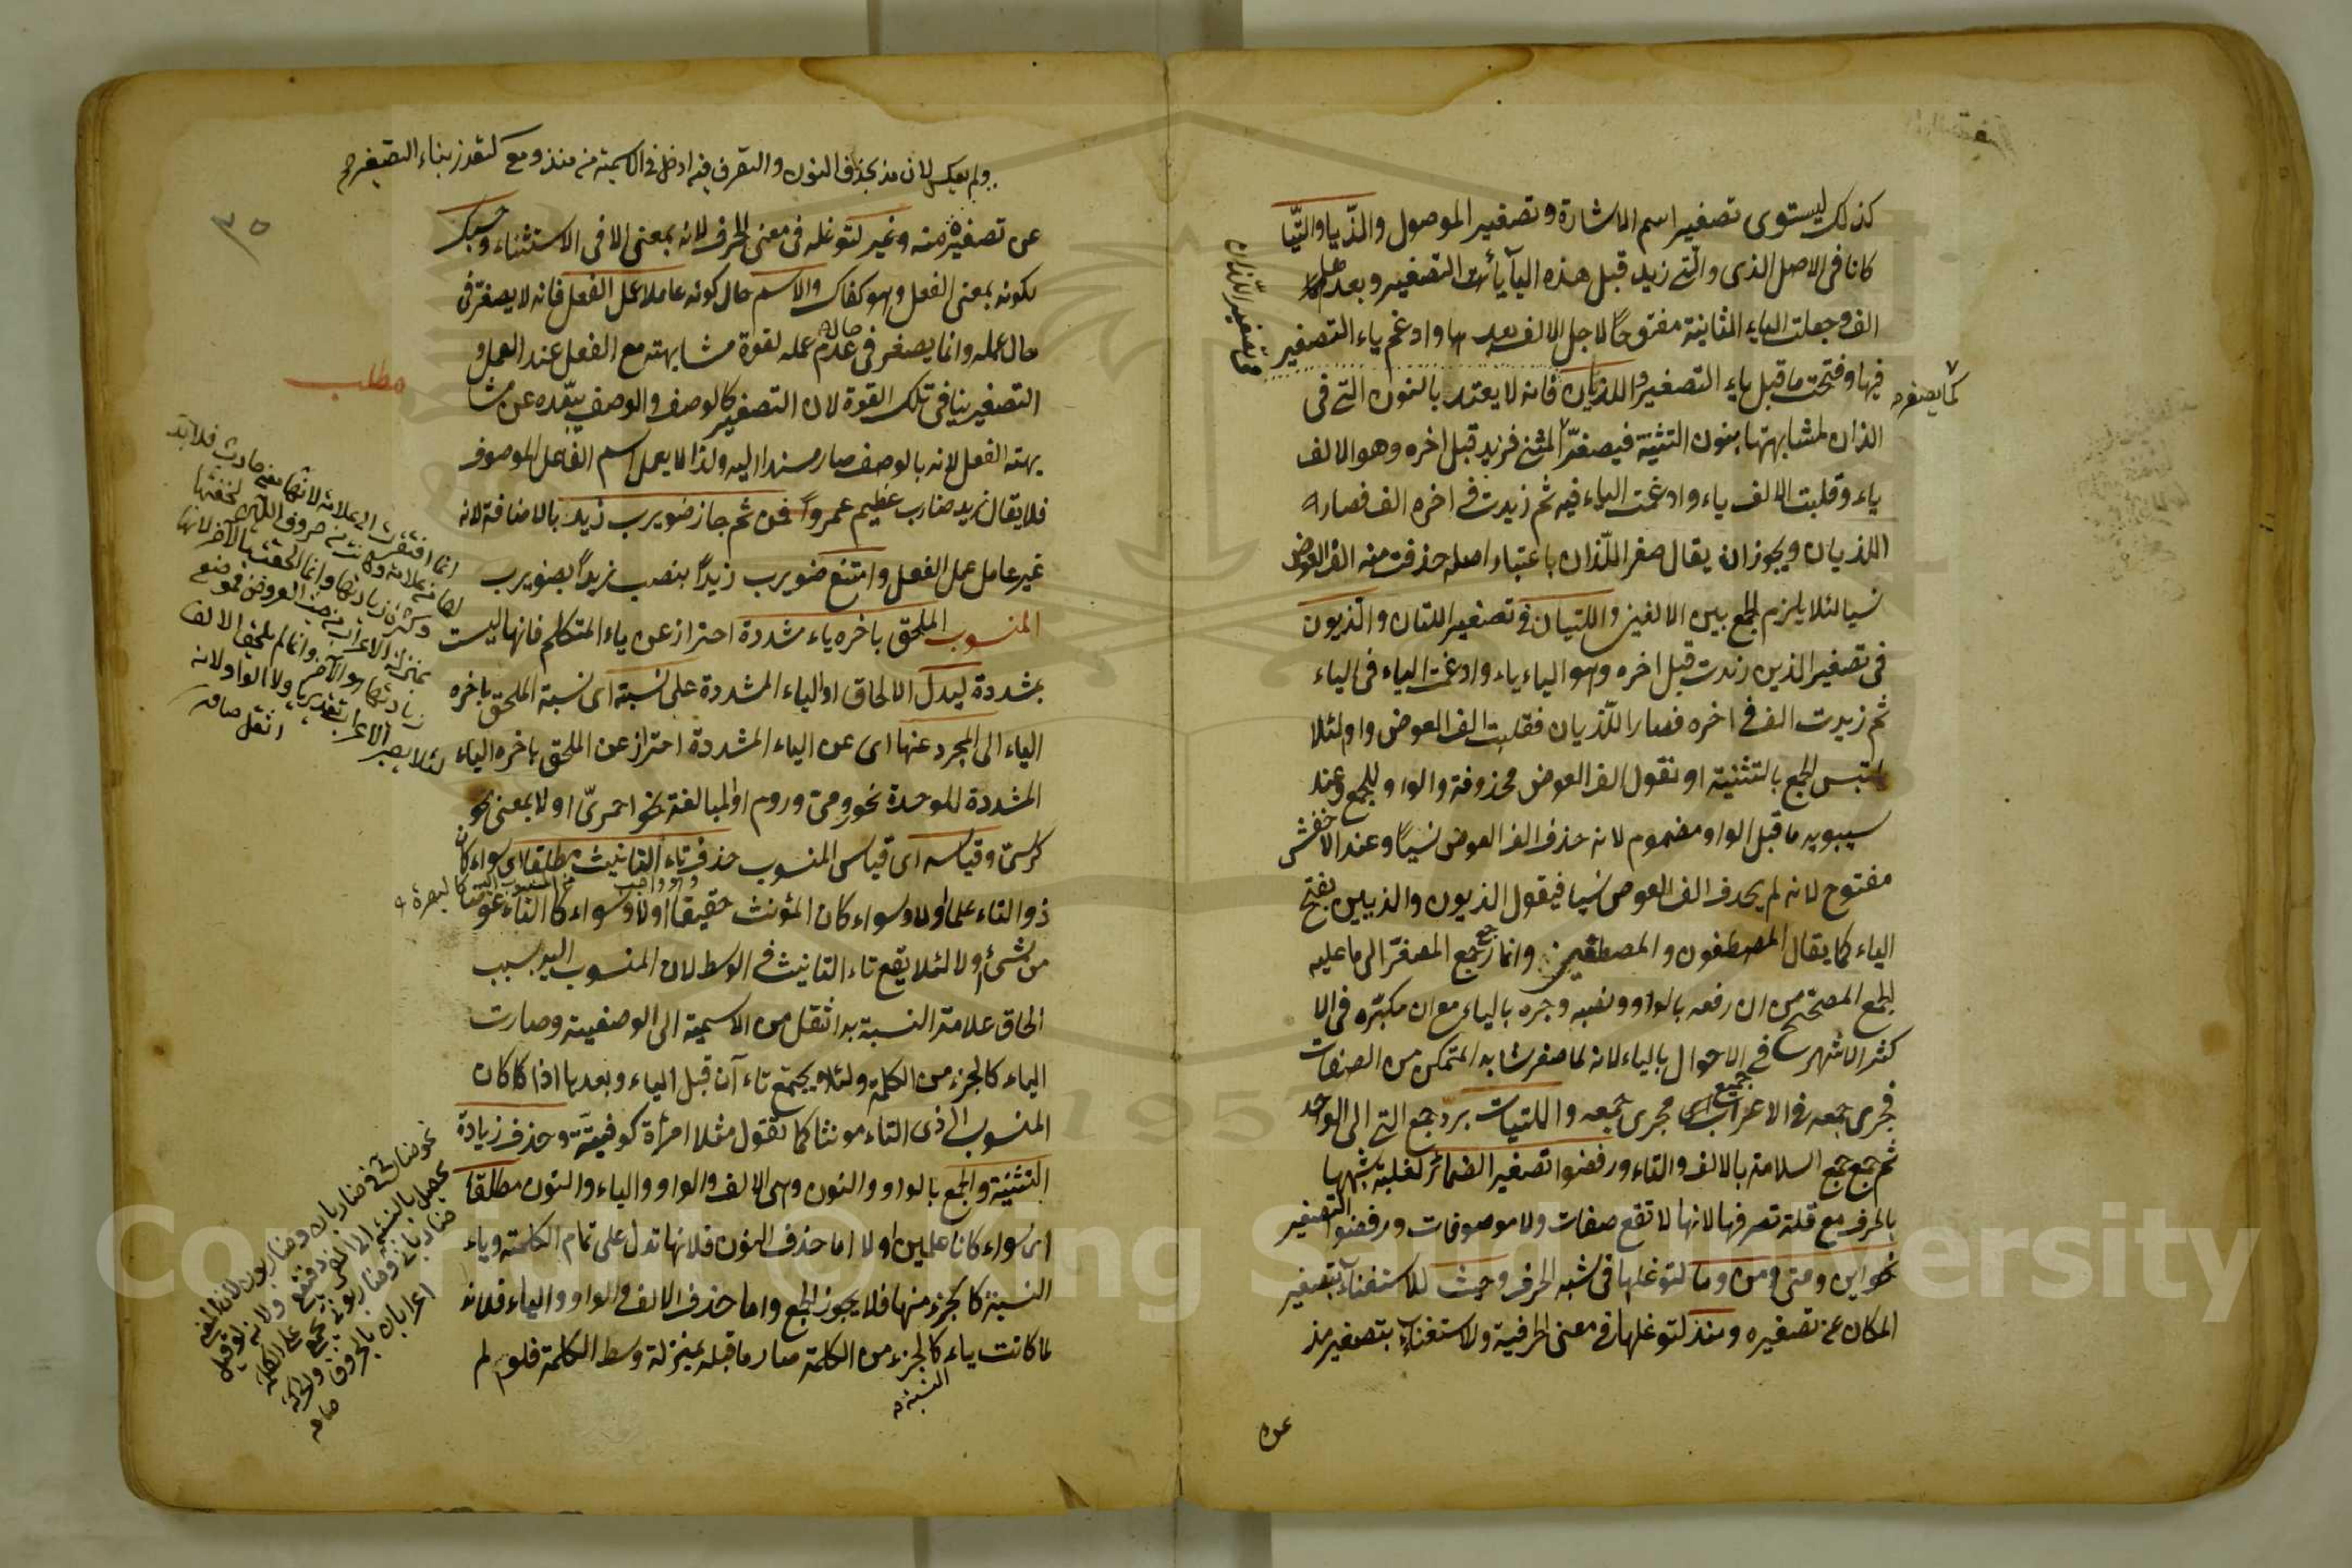 كذلك ليستوى تصغير اسم الاشارة وتصغير الموصول والذّيا والتّيا
كانا فى الاصل الذى والتى زيد قبل هذه اليآ يائ التصغير وبعدها
الف وجعلت الياء الثانية مفتوحا لاجل الالف بعدها وادغم ياء التصغير
فيها وفتحت ما قبل ياء التصغير واللذيان فانه لا يعتد بالنون التى فى
الذان لمشابهتها بنون التثنية فيصغر المثنى فزيد قبل اخره وهو الالف
ياء وقلبت الالف ياء وادغمت الياء فيه ثم زيدت فى اخره الف فصار
اللذيان ويجوز ان يقال صغر اللّذان باعتبار اصله حذفت منه الف العوض
نسيا لئلا يلزم الجمع بين الالفين واللتيان فى تصغير اللتان والذيون
فى تصغير الذين زيدت قبل اخره وهو الياء ياء وادغمت الياء فى الياء
ثم زيدت الف فى اخره فصار اللّذيان فقلبت الف العوض واو لئلا
يلتبس الجمع بالتثنية او نقول الف العوض محذوفة والواو للجمع وعند
سيبويه ما قبل الواو مضموم لانه حذف الف العوض نسيًا وعند الاخفش
مفتوح لانه لم يحذف الف العوض نسيا فيقول الذيون والذيين بفتح
الياء كما يقال المصطفون والمصطفين وانما رجع جمع المصغّر الى ما عليه
الجمع المصحح من ان رفعه بالواو ونصبه وجره بالياء مع ان مكبّره فى الا
كثر الاشهر فى الاحوال بالياء لانه لما صغر شابه المتمكن من الصفات
فجرى جمعه فى الاعراب مجرى جمعه واللتيات بردّ جمع التى الى الواحد
ثم جمع جمع السلامة بالالف والتاء ورفضوا تصغير الضمائر لغلبة شبهها
بالحرف مع قلة تصرفها لانها لا تقع صفات ولا موصوفات ورفضوا التصغير
نحو اين ومتى ومن وما لتوغلها فى شبه الحرف وحيث للاستغناء بتصغير
المكان عن تصغيره ومنذ لتوغلها فى معنى الحرفية ولاستغناء بتصغير مذ
عن
كما يصغر
فى تصغير اللّذان
ولم يعكس لان مذ بحذف النون والتصرف فيه ادخل فى الاسمية من منذ ومع لتعذر بناء التصغير
٣٥
عن تصغيره منه وغير لتوغله فى معنى الحرف لانه بمعنى الا فى الاستثناء وحسبك
لكونه بمعنى الفعل وهو كفاك والاسم حال كونه عاملا عمل الفعل فانه لا يصغر فى
حال عمله وانما يصغر فى حالة عدم عمله لقوة مشابهته مع الفعل عند العمل و
التصغير ينافى تلك القوة لان التصغير كالوصف والوصف يبعّده عن مشا
بهته الفعل لانه بالوصف صار مسندا اليه ولذا لا يعمل اسم الفاعل الموصوف
فلا يقال زيد ضارب عظيم عمرواً فمن ثم جاز ضويرب زيد بالاضافة لانه
غير عامل عمل الفعل وامتنع ضويرب زيداً بنصب زيداً بضويرب
المنسوب الملحق باخره ياء مشددة احتراز عن ياء المتكلم فانها ليست
بمشددة ليدل الالحاق او الياء المشددة على نسبة اى نسبة الملحق باخره
الياء الى المجرد عنها اى عن الياء المشددة احتراز عن الملحق باخره الياء
المشددة للوحدة نحو رومى وروم او المبالغة نحو احمرىّ او لا بمعنى نحو
كرسى وقياسه اى قياس المنسوب حذف تاء التانيث مطلقا اى سواء كان
ذو التاء علما اولا وسواء كان المؤنث حقيقا اولا وسواء كا التاء عوضا
من شئ اولا لئلا يقع تاء التانيث فى الوسط لان المنسوب اليه بسبب
الحاق علامة النسبة به انتقل من الاسمية الى الوصفية وصارت
الياء كالجزء من الكلمة ولئلا يجتمع تاء آن قبل الياء وبعدها اذا كا كان
المنسوب الى ذى التاء مونثا كما تقول مثلا امرأة كوفيّة وحذف زيادة
التثنية والجمع بالواو والنون وهى الالف والواو والياء والنون مطلقا
اى سواء كانا علمين اولا اما حذف النون فلانها تدل على تمام الكلمة وياء
النسبة كا لجزء منها فلا يجوز الجمع واما حذف الالف والواو والياء فلانه
لما كانت ياء كالجزء من الكلمة صار ما قبله بمنزلة وسط الكلمة فلو لم
النسبة
مطلب
انما افتقرت الى علامة لانها معنى حادث فلا بد
لها من علامة وكانت من حروف اللين لخفتها
وكثرة زيادتها وانما لحقت بالآخر لانها
بمنزلة الاعراب من حيث العروض فموضع
زيادتها هو الآخر وانما لم يلحق الالف
لئلا يصير الاعراب تقديريا ولا الواو لانه
اثقل
Copyright © King Saud University
1957